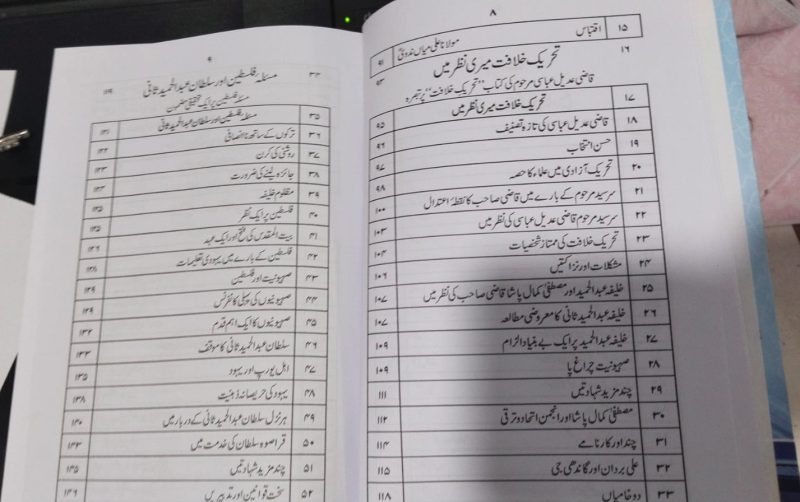 ۸
۱۵ اقتباس مولانا علی میاں ندویؒ ۹۱
۱۶ تحریک خلافت میری نظر میں ۹۳
قاضی عدیل عباسی مرحوم کی کتاب "تحریک خلافت" پر تبصرہ
۱۷ تحریک خلافت میری نظر میں ۹۵
۱۸ قاضی عدیل عباسی کی تازہ تصنیف ۹۶
۱۹ حسن انتخاب ۹۷
۲۰ تحریک آزادی میں علماء کا حصہ ۹۸
۲۱ سرسید مرحوم کے بارے میں قاضی صاحب کا نقطۂ اعتدال ۱۰۰
۲۲ سرسید مرحوم قاضی عدیل عباسی کی نظر میں ۱۰۳
۲۳ تحریک خلافت کی ممتاز شخصیات ۱۰۴
۲۴ مشکلات اور نزاکتیں ۱۰۶
۲۵ خلیفہ عبدالحمید اور مصطفیٰ کمال پاشا قاضی صاحب کی نظر میں ۱۰۷
۲۶ خلیفہ عبدالحمید ثانی کا معروضی مطالعہ ۱۰۷
۲۷ خلیفہ عبدالحمید پر ایک بے بنیاد الزام ۱۰۹
۲۸ صہیونیت چراغ پا ۱۰۹
۲۹ چند مزید شہادتیں ۱۱۱
۳۰ مصطفیٰ کمال پاشا اور انجمن اتحاد و ترقی ۱۱۲
۳۱ چند اور کارنامے ۱۱۴
۳۲ علی بردران اور گاندھی جی ۱۱۵
۳۳ دو خامیاں ۱۱۸
۹
۳۴ مسئلہ فلسطین اور سلطان عبدالحمید ثانی ۱۱۹
مسئلہ فلسطین پر ایک تحقیقی مضمون
۳۵ مسئلہ فلسطین اور سلطان عبدالحمید ثانی ۱۲۱
۳۶ ترکوں کے ساتھ ناانصافی ۱۲۲
۳۷ روشنی کی کرن ۱۲۳
۳۸ جائزہ لینے کی ضرورت ۱۲۳
۳۹ مظلوم خلیفہ ۱۲۵
۴۰ فلسطین پر ایک نظر ۱۲۵
۴۱ بیت المقدس کی فتح اور ایک عہد ۱۲۶
۴۲ فلسطین کے بارے میں یہودی تعلیمات ۱۲۸
۴۳ صہیونیت اور فلسطین ۱۲۹
۴۴ صہیونیوں کی پہلی کانفرنس ۱۲۹
۴۵ صہیونیوں کا ایک اہم قدم ۱۳۲
۴۶ سلطان عبدالحمید ثانی کا موقف ۱۳۳
۴۷ اہل یورپ اور یہود ۱۳۵
۴۸ یہود کی حریصانہ ذہنیت ۱۳۸
۴۹ ہرٹزل سلطان عبدالحمید ثانی کے دربار میں ۱۴۰
۵۰ قراصوہ سلطان کی خدمت میں ۱۴۳
۵۱ چند مزید شہادتیں ۱۴۵
۵۲ سخت قوانین اور تدبیریں ۱۴۶